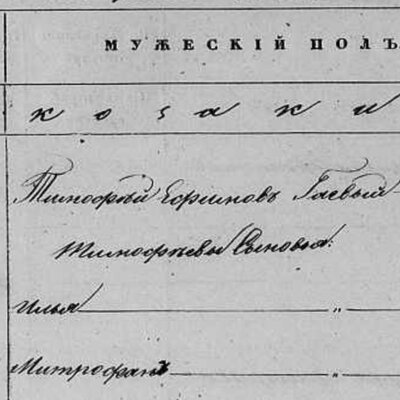 МУЖЕСКІЙ ПОЛЪ
козаки
Тимофѣй Ефимовъ Гаевый
Тимофѣевы Сыновья:
Илья „
Митрофанъ „